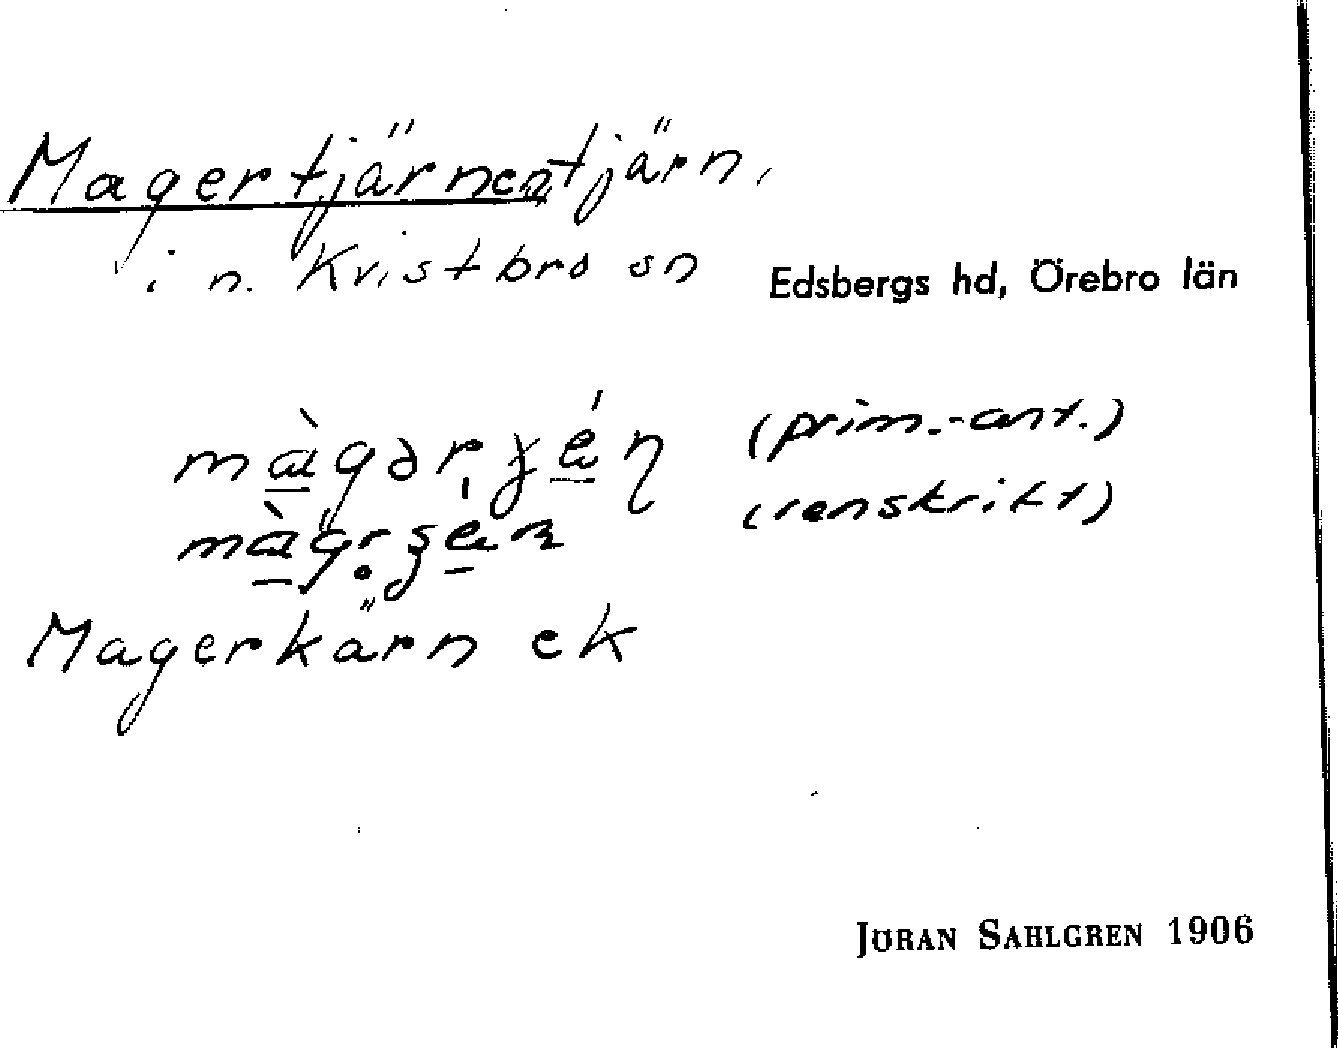 Magertjärnen tjärn,
i n. Kvistbro sn Edsbergs hd, Örebro län
(prim.-ant.)
(renskrift)
Magerkärn ek
JÖRAN SAHLGREN 1906